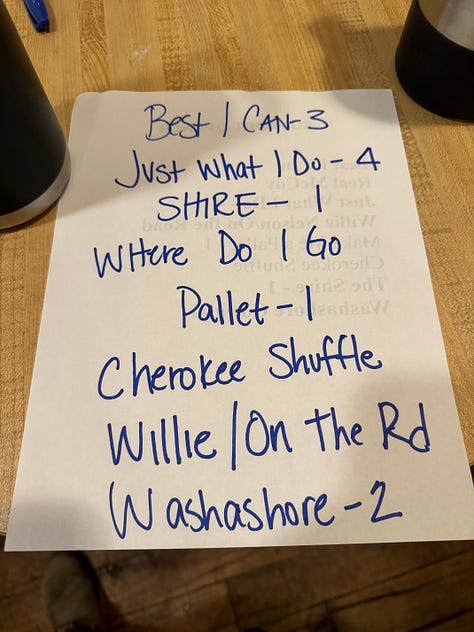 Best I CAN-3
Just What I Do - 4
SHIRE - 1
WHere Do I Go
Pallet - 1
Cherokee Shuffle
Willie/On The Rd
Washashore - 2